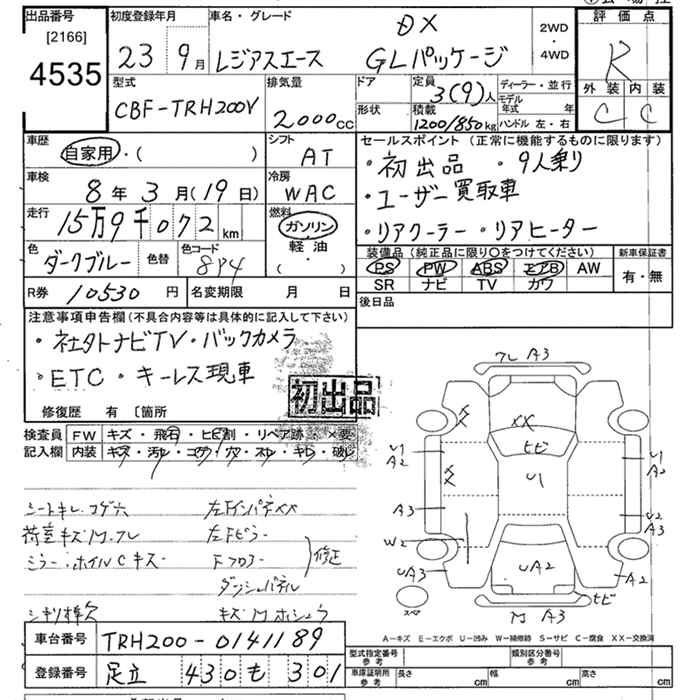 出品番号
[2166]
4535
初度登録年月
23 9月
車名・グレード
レジアスエース
DX
GLパッケージ
2WD
・
4WD
評価点
R
外装 内装
C C
型式
CBF-TRH200V
排気量
2000cc
ドア
形状
定員
3(9)人
積載
1200/850kg
ディーラー・並行
モデル年式 年
ハンドル 左・右
車歴
自家用・( )
シフト
AT
車検
8年3月(19日)
冷房
WAC
走行
15万9千072km
燃料
ガソリン
軽油
( ・ )
色
ダークブルー
色替
色コード
8P4
R券 10530円
名変期限 月 日
セールスポイント (正常に機能するものに限ります)
・初出品 ・9人乗り
・ユーザー買取車
・リアクーラー ・リアヒーター
装備品 (純正品に限り○をつけてください)
新車保証書
PS PW ABS エアB AW
SR ナビ TV カワ
有・無
後日品
注意事項申告欄 (不具合内容等は具体的に記入して下さい)
・社外ナビTV・バックカメラ
・ETC ・キーレス現車
初出品
修復歴 有 〔箇所
検査員 FW キズ・飛石・ヒビ割・リペア跡・×要
記入欄 内装 キズ・汚レ・コゲ・穴・スレ・キレ・破レ
シートキレ、コゲ穴
荷室キズM、フレ
ミラー・ホイルCキズ
シキリ棒欠
左FインパネXX
左Fピラー
Fフロアー
修正
ダッシュパネル
キズMホシュウ
フレ A3
XX
ヒビ
U1
A2
U1
U1
A2
A3
U2
A3
W2
UA3
UA2
A2
ヒビ
M A3
スペア
A―キズ E―エクボ U―凹み W―補修跡 S―サビ C―腐食 XX―交換済
車台番号 TRH200-0141189
登録番号 足立 430 も 301
型式指定番号
参考
類別区分番号
参考
車庫証明用
参考
長さ cm
幅 cm
高さ cm